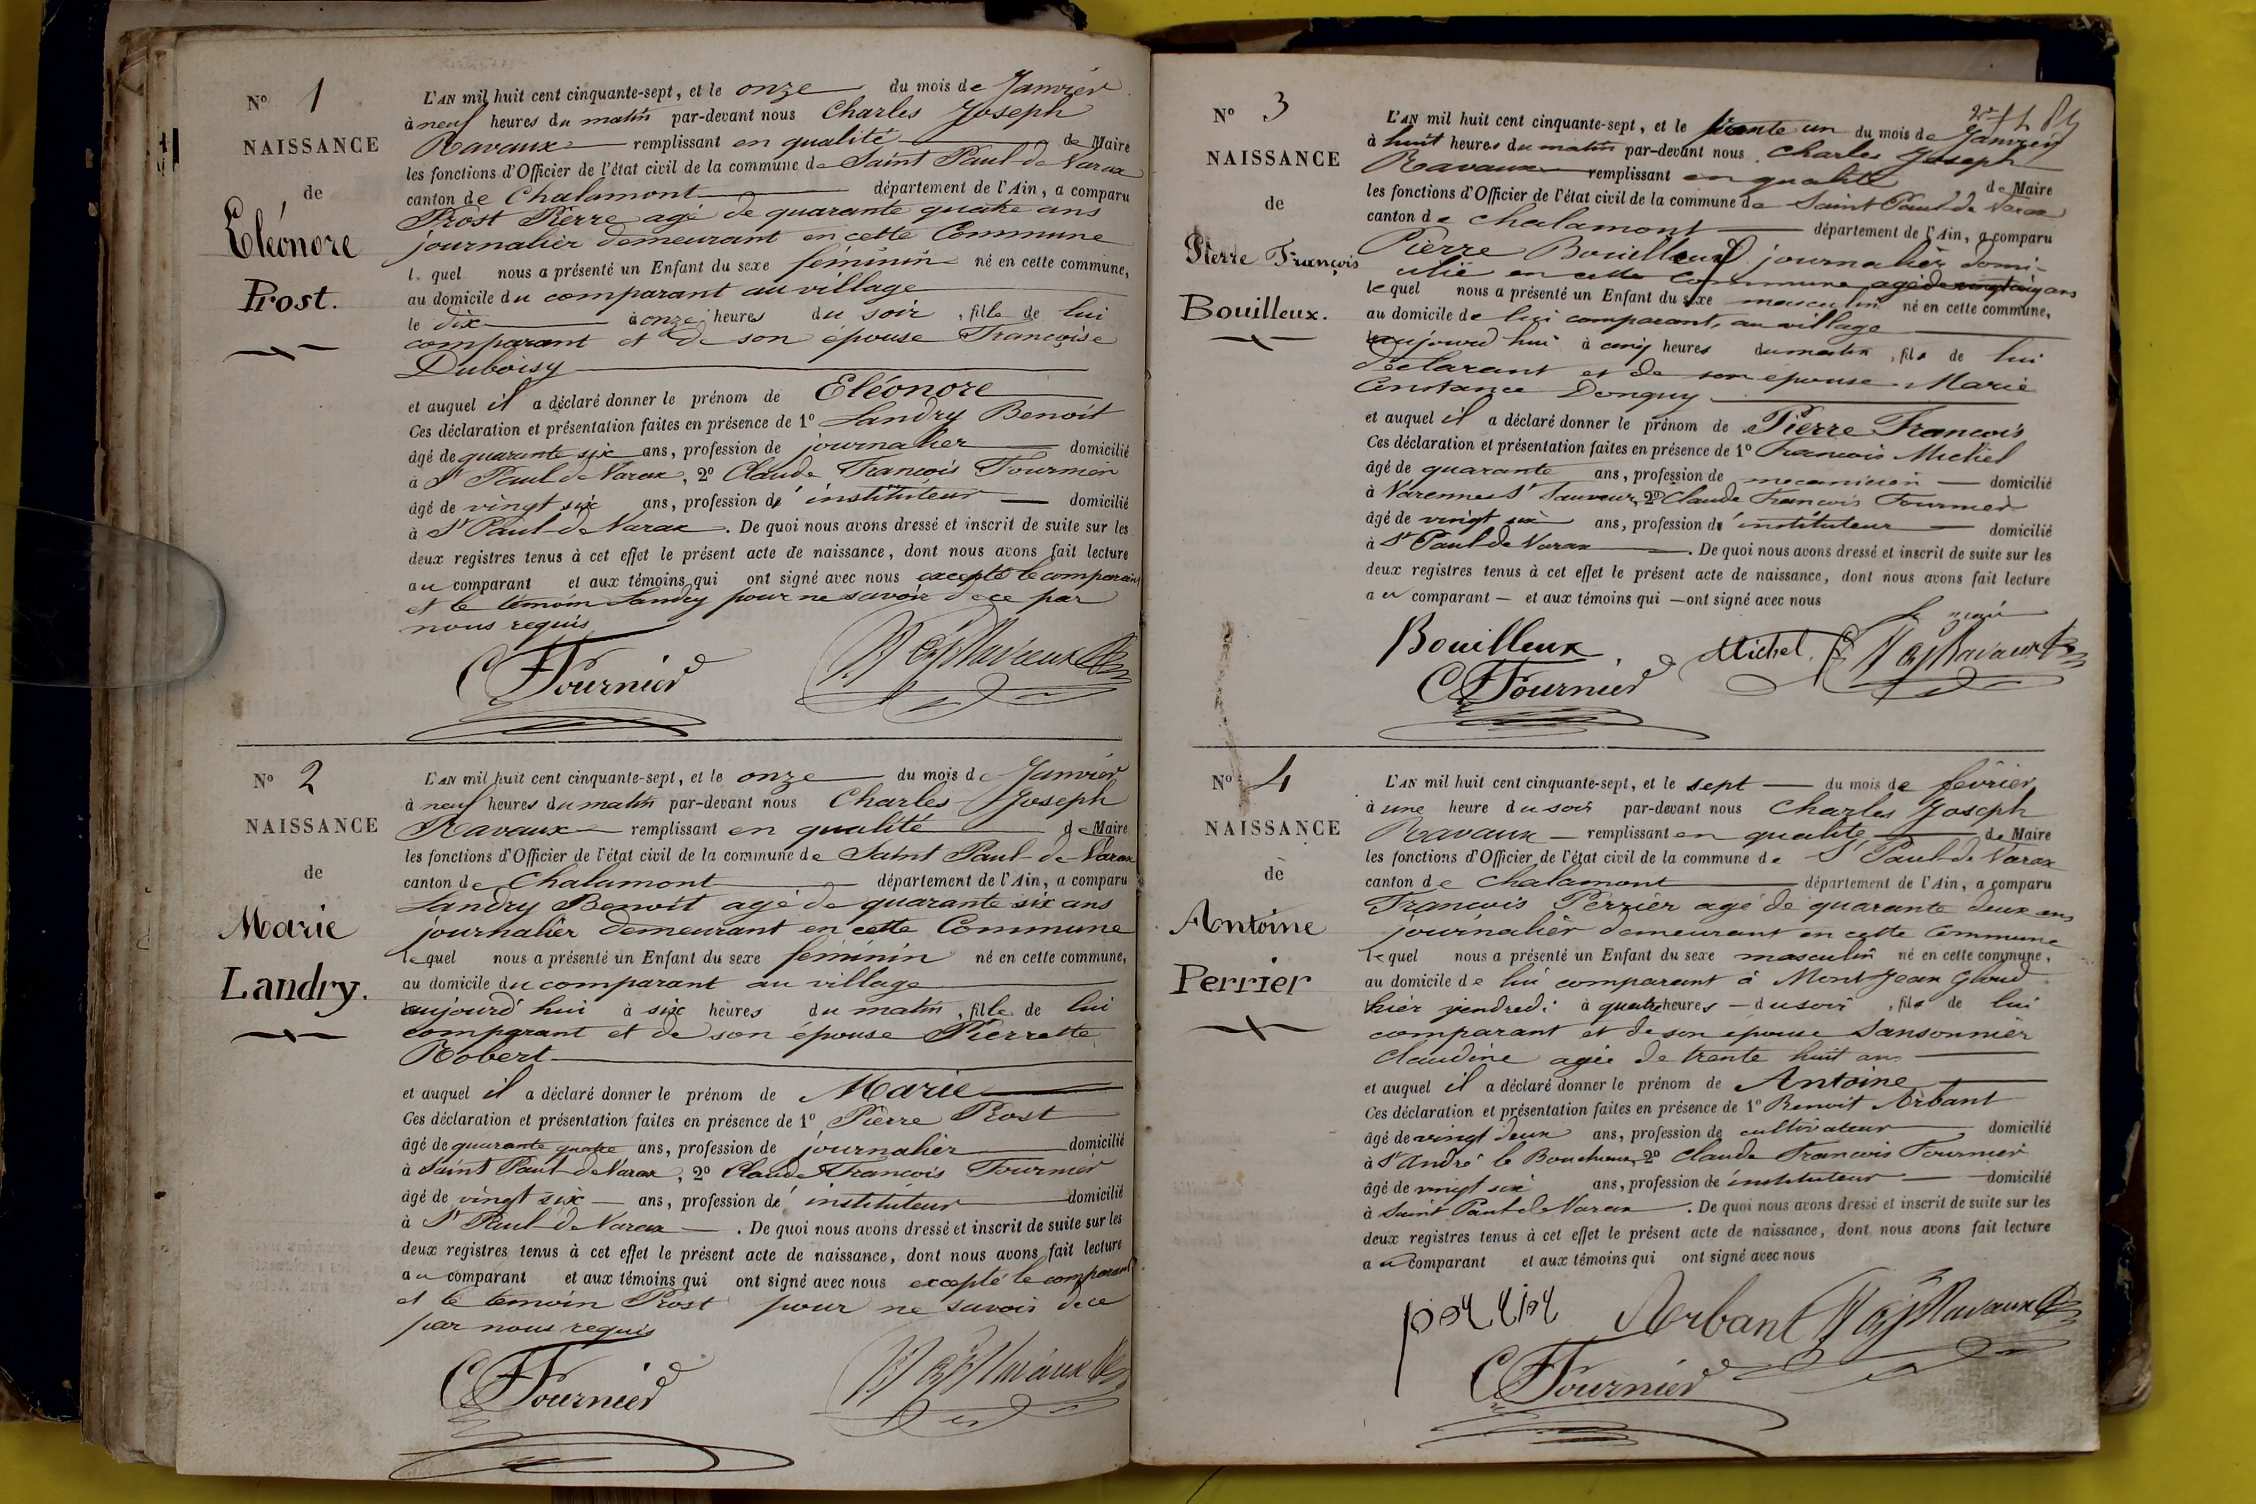 N° 1
NAISSANCE
de
Eléonore
Prost.
L'AN mil huit cent cinquante-sept, et le onze du mois de Janvier
à neuf heures du matin par-devant nous Charles Joseph
Ravaux remplissant en qualité de Maire
les fonctions d'Officier de l'état civil de la commune de Saint Paul de Varax
canton de Chalamont département de l'Ain, a comparu
Prost Pierre agé de quarante quatre ans
journalier demeurant en cette Commune
l quel nous a présenté un Enfant du sexe féminin né en cette commune,
au domicile du comparant au village
le dix à onze heures du soir, fille de lui
comparant et de son épouse Françoise
Duboisy
et auquel il a déclaré donner le prénom de Eléonore
Ces déclaration et présentation faites en présence de 1° Landry Benoit
âgé de quarante six ans, profession de journalier domicilié
à St Paul de Varax, 2° Claude François Fournier
âgé de vingt six ans, profession d' instituteur domicilié
à St Paul de Varax. De quoi nous avons dressé et inscrit de suite sur les
deux registres tenus à cet effet le présent acte de naissance, dont nous avons fait lecture
au comparant et aux témoins qui ont signé avec nous excepté le comparant
et le témoin Landry pour ne savoir de ce par
nous requis
C F Fournier Ravaux
N° 2
NAISSANCE
de
Marie
Landry.
L'AN mil huit cent cinquante-sept, et le onze du mois de Janvier
à neuf heures du matin par-devant nous Charles Joseph
Ravaux remplissant en qualité de Maire
les fonctions d'Officier de l'état civil de la commune de Saint Paul de Varax
canton de Chalamont département de l'Ain, a comparu
Landry Benoit agé de quarante six ans
journalier demeurant en cette Commune
lequel nous a présenté un Enfant du sexe féminin né en cette commune,
au domicile du comparant au village
aujourd'hui à six heures du matin, fille de lui
comparant et de son épouse Pierrette
Robert
et auquel il a déclaré donner le prénom de Marie
Ces déclaration et présentation faites en présence de 1° Pierre Prost
âgé de quarante quatre ans, profession de journalier domicilié
à Saint Paul de Varax, 2° Claude François Fournier
âgé de vingt six ans, profession d' instituteur domicilié
à St Paul de Varax. De quoi nous avons dressé et inscrit de suite sur les
deux registres tenus à cet effet le présent acte de naissance, dont nous avons fait lecture
au comparant et aux témoins qui ont signé avec nous excepté le comparant
et le temoin Prost pour ne savoir de ce
par nous requis
C F Fournier Ravaux
N° 3
NAISSANCE
de
Pierre François
Bouilleux.
L'AN mil huit cent cinquante-sept, et le trente un du mois de Janvier
à huit heures du matin par-devant nous Charles Joseph
Ravaux remplissant en qualité de Maire
les fonctions d'Officier de l'état civil de la commune de Saint Paul de Varax
canton de Chalamont département de l'Ain, a comparu
Pierre Bouilleux journalier domi-
cilié en cette Commune agé de vingt cinq ans
lequel nous a présenté un Enfant du sexe masculin né en cette commune,
au domicile de lui comparant, au village
aujourd hui à cinq heures du matin, fils de lui
déclarant et de son epouse Marie
Constance Donguy
et auquel il a déclaré donner le prénom de Pierre François
Ces déclaration et présentation faites en présence de 1° François Michel
âgé de quarante ans, profession de mecanicien domicilié
à Varennes St Sauveur, 2° Claude François Fournier
âgé de vingt six ans, profession d' instituteur domicilié
à St Paul de Varax. De quoi nous avons dressé et inscrit de suite sur les
deux registres tenus à cet effet le présent acte de naissance, dont nous avons fait lecture
au comparant et aux témoins qui ont signé avec nous
Bouilleux Michel. Ravaux
C F Fournier
N° 4
NAISSANCE
de
Antoine
Perrier
L'AN mil huit cent cinquante-sept, et le sept du mois de février
à une heure du soir par-devant nous Charles Joseph
Ravaux remplissant en qualité de Maire
les fonctions d'Officier de l'état civil de la commune de St Paul de Varax
canton de Chalamont département de l'Ain, a comparu
François Perrier agé de quarante deux ans
journalier demeurant en cette Commune
lequel nous a présenté un Enfant du sexe masculin né en cette commune,
au domicile de lui comparant à Mont Jean Gloud
hier vendredi à quatre heures du soir, fils de lui
comparant et de son épouse Sansonnier
Claudine agée de trente huit ans
et auquel il a déclaré donner le prénom de Antoine
Ces déclaration et présentation faites en présence de 1° Benoit Arbant
âgé de vingt deux ans, profession de cultivateur domicilié
à St André le Bouchoux, 2° Claude François Fournier
âgé de vingt six ans, profession de instituteur domicilié
à Saint Paul de Varax. De quoi nous avons dressé et inscrit de suite sur les
deux registres tenus à cet effet le présent acte de naissance, dont nous avons fait lecture
au comparant et aux témoins qui ont signé avec nous
perrier Arbant Ravaux
C F Fournier